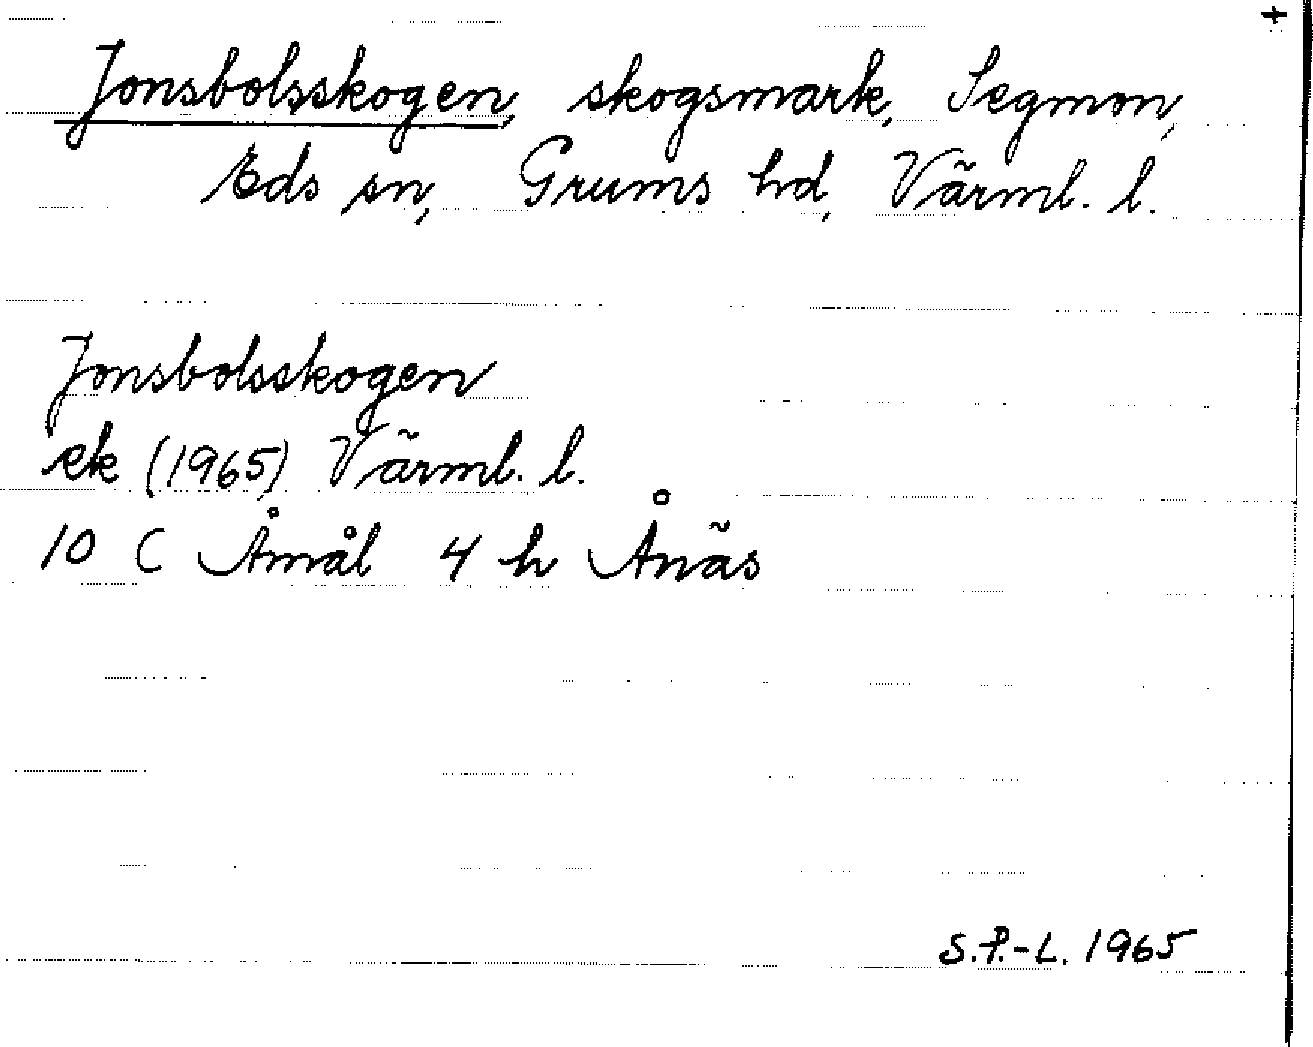 +
Jonsbolsskogen, skogsmark, Segmon,
Eds sn, Grums hd, Värml. l.
Jonsbolsskogen
ek (1965) Värml. l.
10 C Åmål 4 h Ånäs
S.P.-L. 1965